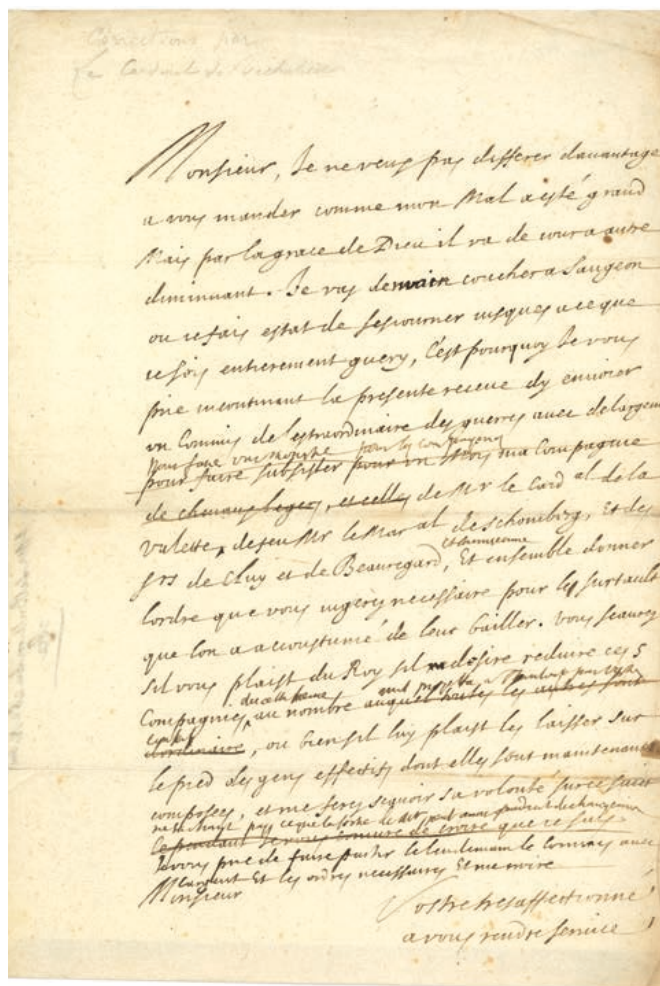 Corrections par
Le Cardinal de Richelieu
Monsieur, Je ne veus pas differer dauantage
a vous mander comme mon Mal a esté grand
Mais par la grace de Dieu il va de iour a autre
diminuant. Je vas demain coucher a Saugeon
ou ie fais estat de seiourner iusques a ce que
ie sois entierement guery, C'est pourquoy Je vous
prie incontinant la presente receue dy enuoier
vn Commis de l'extraordinaire des guerres auec de largent
pour faire vne monstre pour les
pour faire subsister pour vn Mois ma Compagnie
de cheuaux legers, et celles de Mr le Card al de la
Valette, de feu Mr le Mar al de Schomberg, Et des
srs de Cluy et de Beauregard, Et ensemble donner
lordre que vous iugerés necessaire pour les surtaulx
que lon a accoustumé de leur bailler. Vous scaurés
sil vous plaist du Roy sil desire reduire ces 5
Compagnies au nombre auquel toutes les autres sont
dordinaire, ou bien sil luy plaist les laisser sur
le pied des gens effectifs dont elles sont maintenant
composées, et me ferés scauoir sa volonté sur ce suiet
Cependant Je vous coniure de croire que ie suis
Je vous prie de faire partir le lendemain le Commis auec
largent Et les ordres necessaires Et me croire
Monsieur
Vostre tres affectionné
a vous rendre seruice